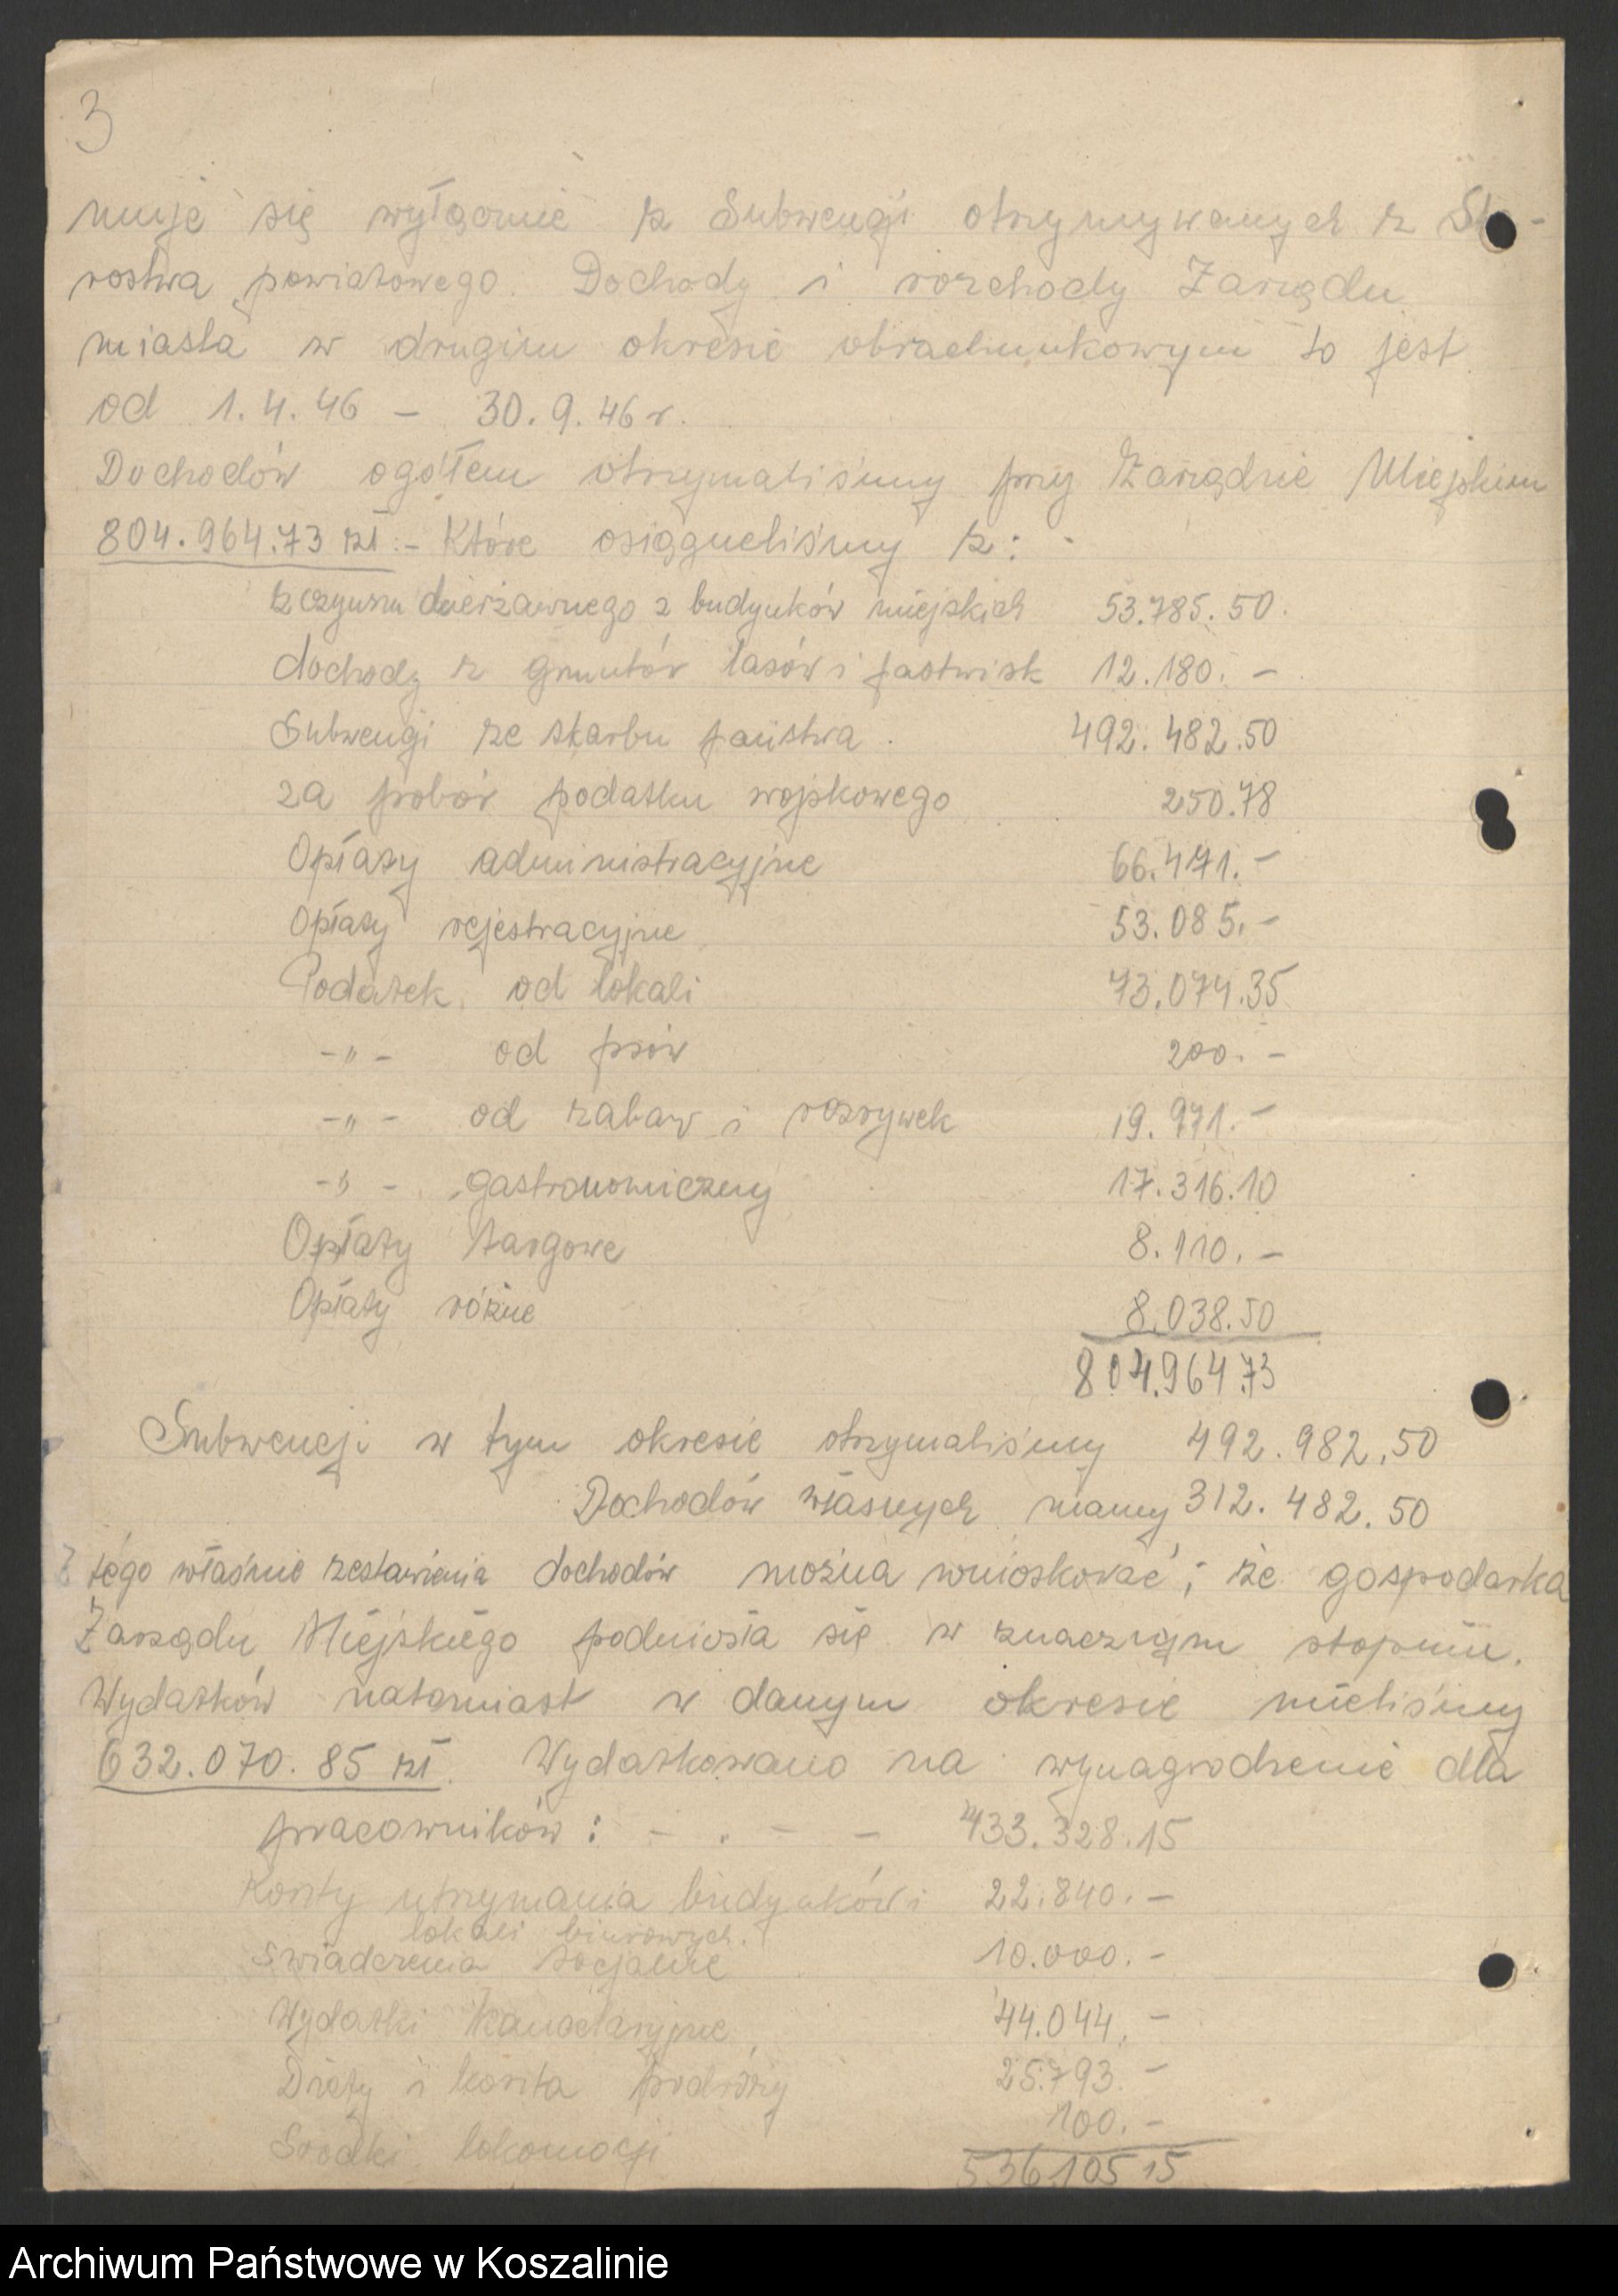 3
muje się wyłącznie z Subwencji otrzymywanych z Sta-
rostwa powiatowego. Dochody i rozchody Zarządu
miasta w drugim okresie obrachunkowym to jest
od 1.4.46 – 30.9.46 r.
Dochodów ogółem otrzymaliśmy przy Zarządzie Miejskim
804.964.73 zł :- Które osiągneliśmy z: -
z czynszu dzierżawnego z budynków miejskich 53.785.50.
dochody z gruntów lasów i pastwisk 12.180. –
Subwencji ze skarbu państwa . 492.482.50
za pobór podatku wojskowego 250.78
Opłaty administracyjne 66.471. –
Opłaty rejestracyjne 53.085. –
Podatek od lokali 73.074.35
-„- od psów 200. –
-„- od zabaw i rozrywek 19.971. –
-„- gastronomiczny 17.316.10
Opłaty targowe 8.110. –
Opłaty różne 8.038.50
804.964.73
Subwencji w tym okresie otrzymaliśmy 492.982.50
Dochodów własnych mamy 312.482.50
Z tego właśnie zestawienia dochodów można wnioskować, że gospodarka
Zarządu Miejskiego podniosła się w znacznym stopniu.
Wydatków natomiast w danym okresie mieliśmy
632.070.85 zł. Wydatkowano na wynagrodzenie dla
pracowników : – . – – 433.328.15
Koszty utrzymania budynków i 22.840. –
lokali biurowych.
Swiadczenia socjalne 10.000. –
Wydatki kancelaryjne 44.044, –
Diety i koszta podróży 25.793. –
Srodki lokomocji 100. –
536.105 15
Archiwum Państwowe w Koszalinie